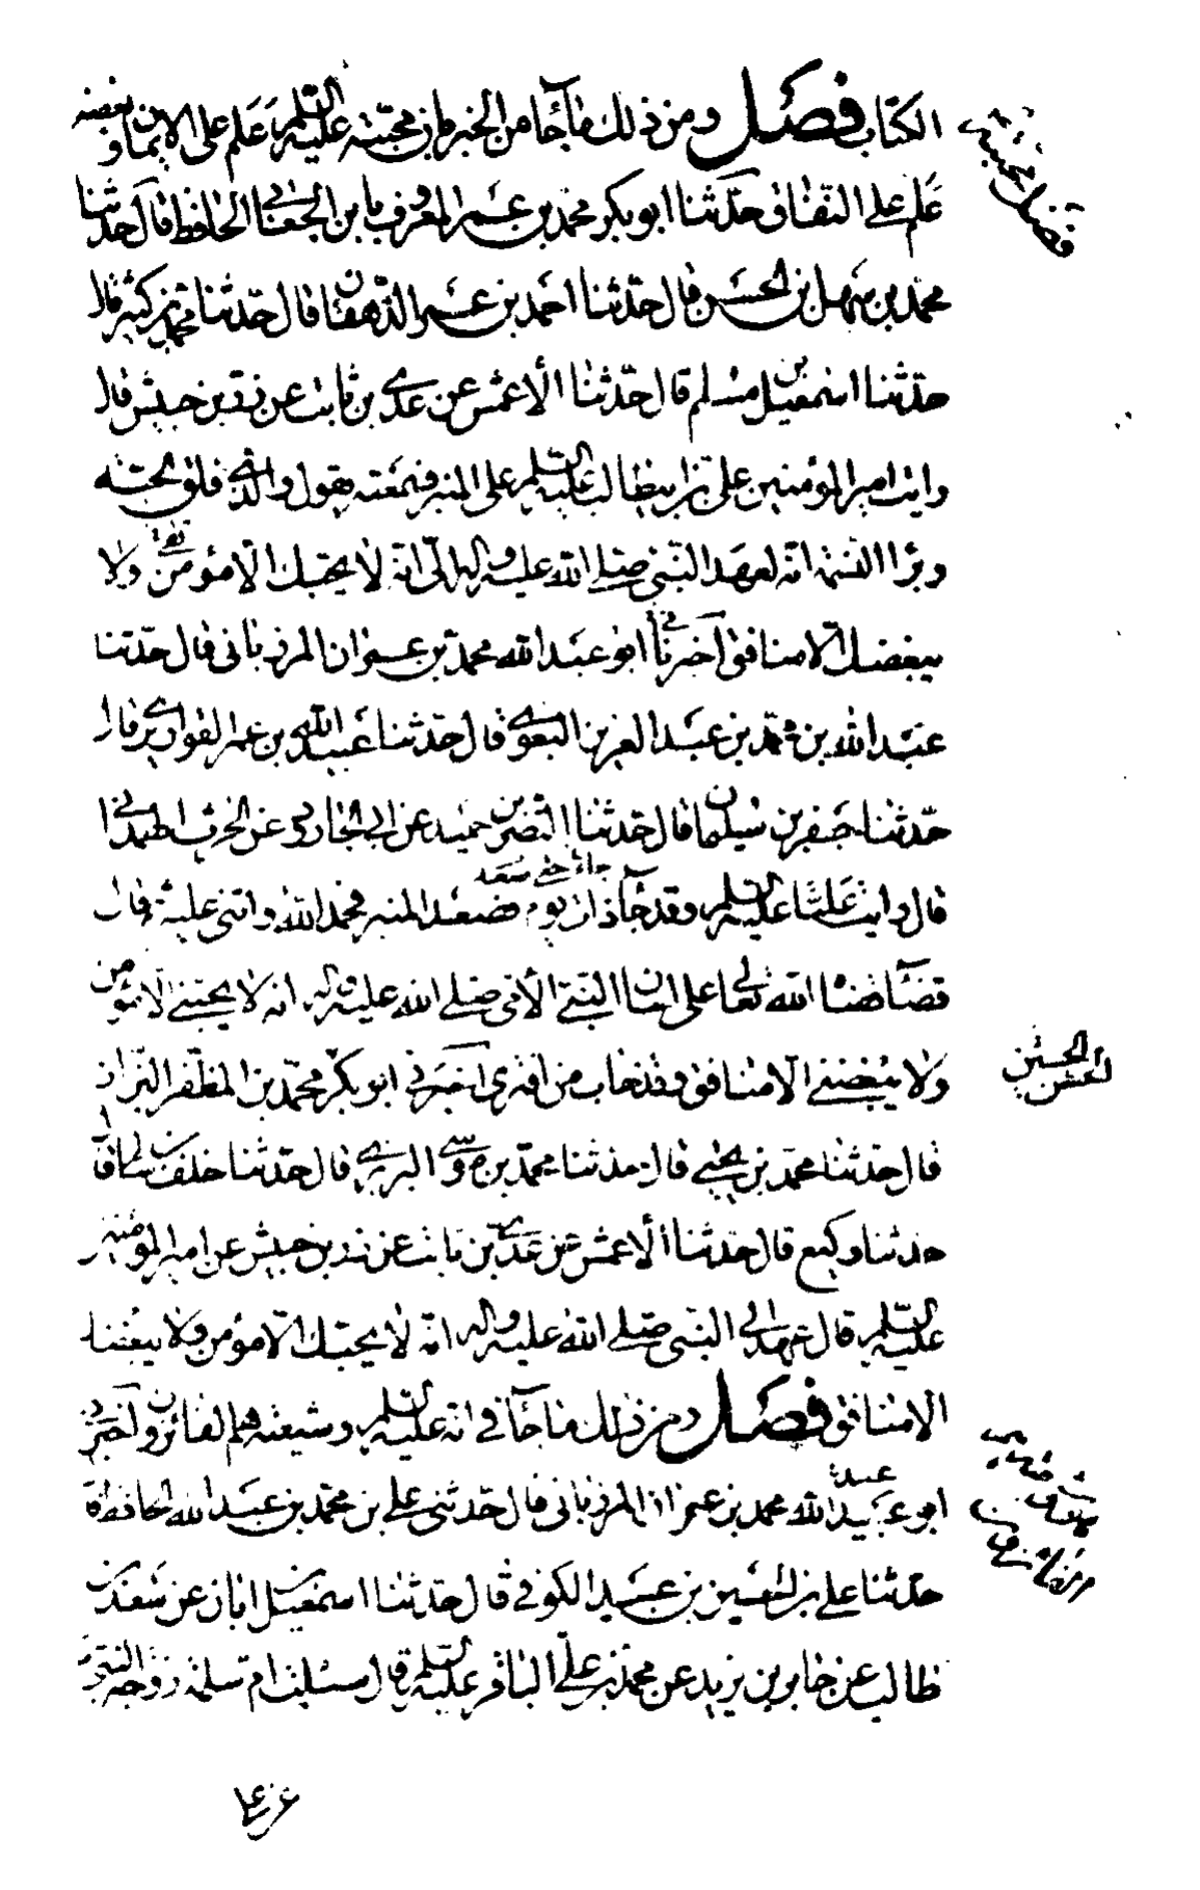 الكتاب فصل ومن ذلك ما جآء من الخبر بان محبّته عليه السّلم عَلَم على الايمان وبغضه
عَلَم على النفاق حدّثنا ابو بكر محمد بن عمر المعروف بابن الجعابي الحافظ قال حدّثنا
محمد بن سهل بن الحسن قال حدّثنا احمد بن عمر الدّهقان قال حدّثنا محمد بن كثير قال
حدّثنا اسمعيل بن مسلم قال حدّثنا الأعمش عن عدي بن ثابت عن زرّ بن حبيش قال
رايت امير المؤمنين علي بن ابيطالب عليه السّلم على المنبر فسمعته يقول والذي فلق الحبّه
وبرأ النسمة انّه لعهد النّبي صلى الله عليه واله الىّ انّه لا يحبّك الّا مؤمن ولا
يبغضك الّا منافق آخر اخبرني ابو عبد الله محمد بن عمران المرزباني قال حدّثنا
عبد الله بن محمّد بن عبد العزيز البغوي قال حدّثنا عبيد الله بن عمر القواريري قال
حدّثنا جعفر بن سليمان قال حدّثنا النّضر بن حميد عن ابي الجارود عن الحرث الهمداني
قال رايت عليّا عليه السّلم وقد جآء ذات يوم فصعد المنبر فحمد الله واثنى عليه ثم قال
جاء حتى صعد
قضآء قضاه الله تعالى على لسان النبيّ الأمّي صلى الله عليه واله انه لا يحبّني الّا مؤمن
ولا يبغضني الّا منافق وقد خاب من افترى آخر اخبرني ابو بكر محمّد بن المظفّر البزّاز
قال حدّثنا محمّد بن يحيى قال حدّثنا محمّد بن موسى البربري قال حدّثنا خلف بن سالم قال
حدثنا وكيع قال حدّثنا الأعمش عن عدي بن ثابت عن زر بن حبيش عن امير المؤمنين
عليه السّلم قال عهد الي النبي صلى الله عليه واله انّه لا يحبّك الّا مؤمن ولا يبغضك
الا منافق فصل ومن ذلك ما جآء في انه عليه السّلم وشيعته هم الفائزون آخر
ابو عبيد الله محمد بن عمران المرزباني قال حدّثني علي بن محمّد بن عبد الله الحافظ قال
حدّثنا علي بن الحسين بن عبيد الكوفي قال حدّثنا اسمعيل بن ابان عن سعد بن
طالب عن جابر بن يزيد عن محمّد بن علي الباقر عليه السّلم قال سئلت ام سلمة زوجة النبي